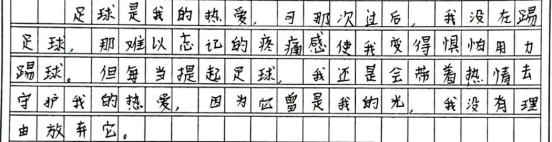 足球是我的热爱，可那次过后，我没在踢
足球，那难以忘记的疼痛感使我变得惧怕用力
踢球。但每当提起足球，我还是会带着热情去
守护我的热爱，因为它曾是我的光，我没有理
由放弃它。